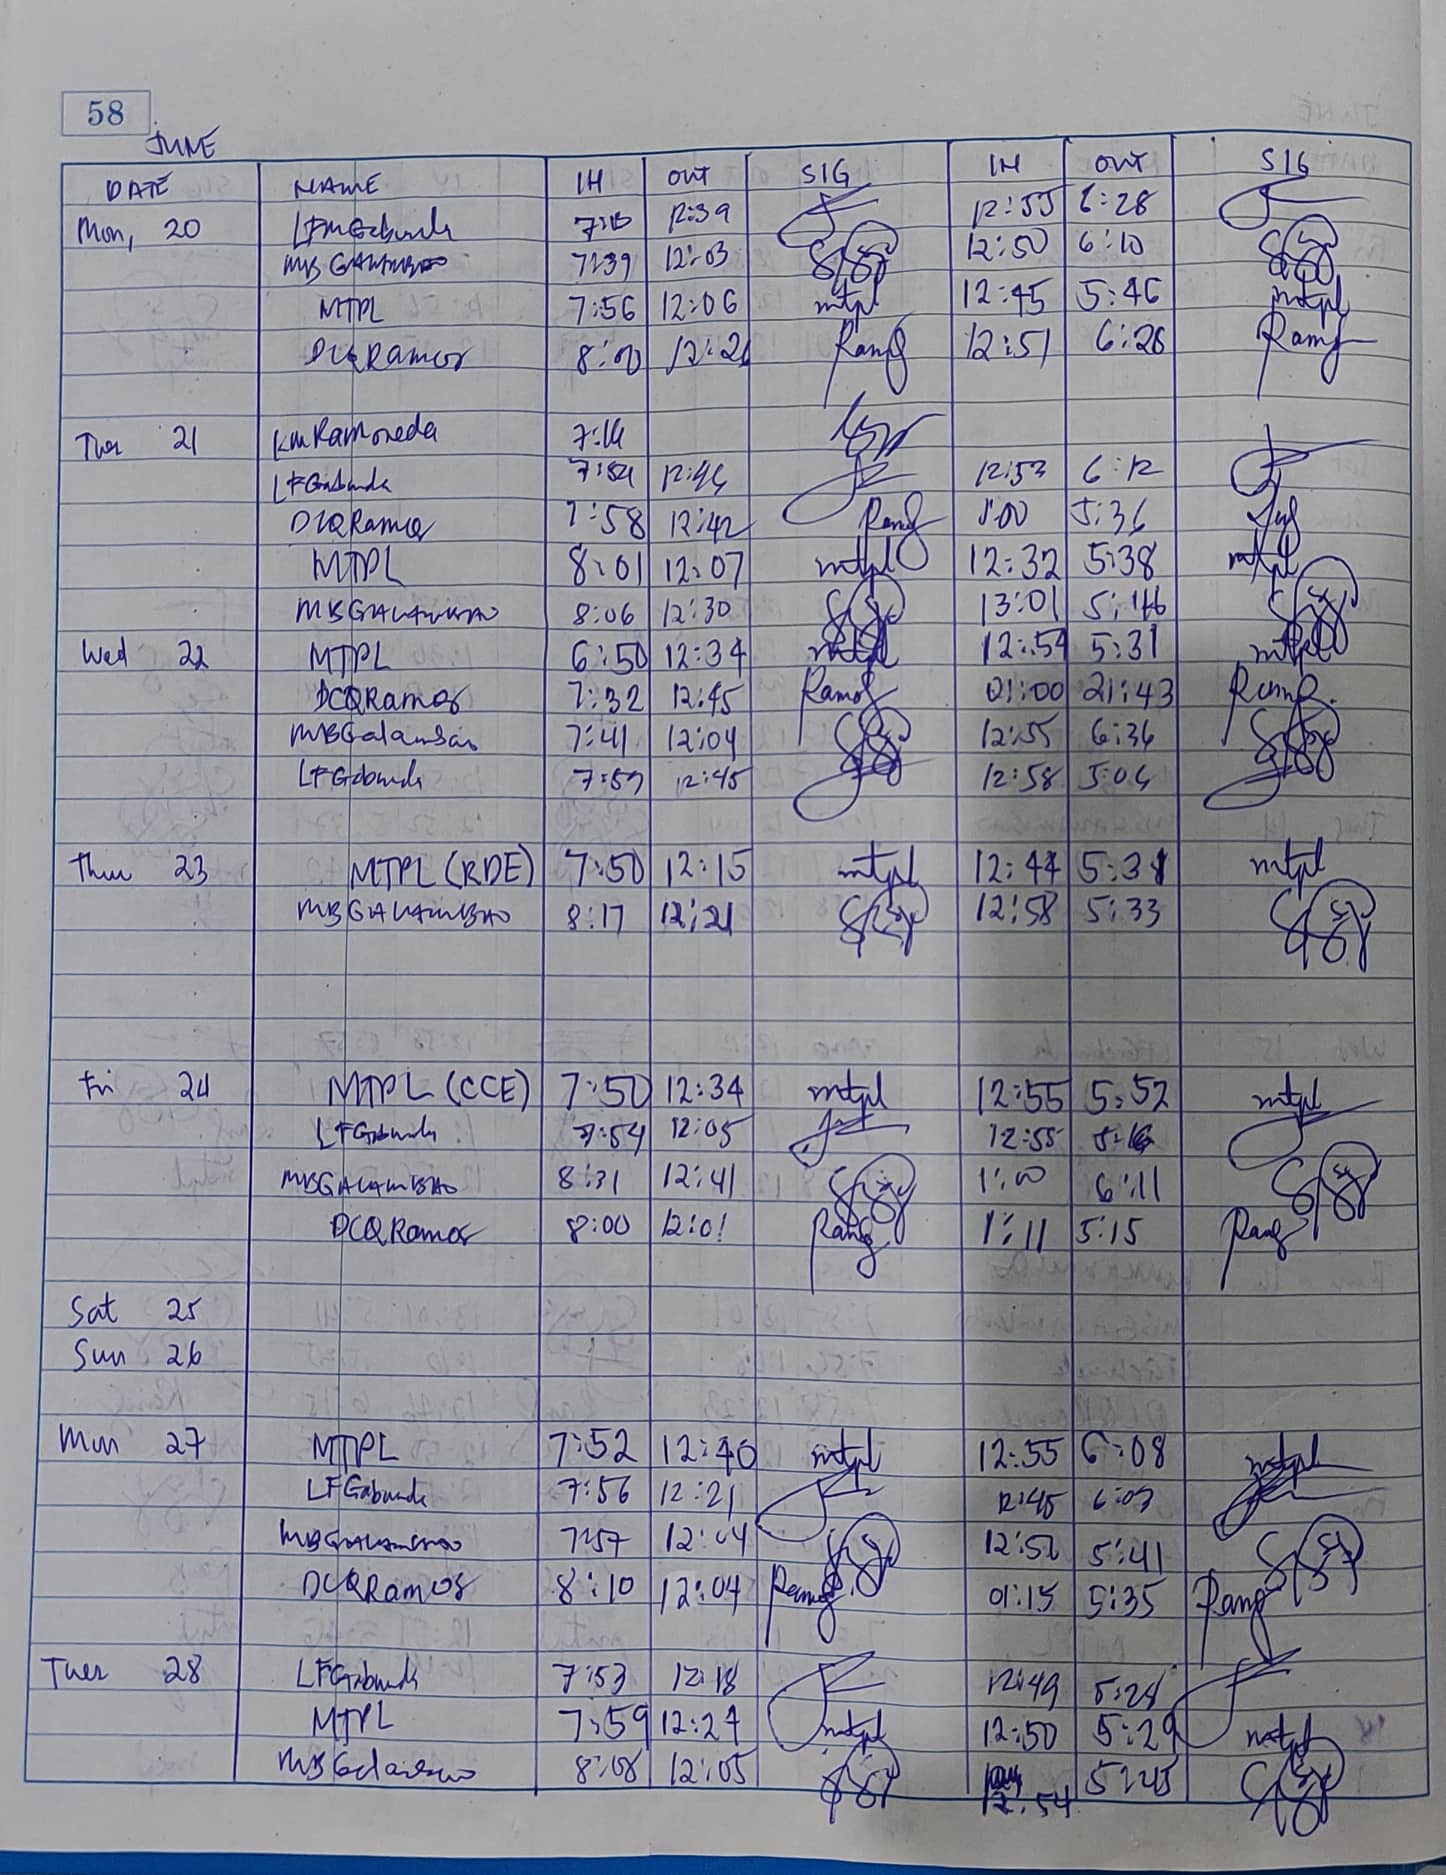 58
JUNE
DATE NAME IN OUT SIG IN OUT SIG
Mon, 20 LFMGabunada 12:39 12:55 6:28
MBGALAMBAO 7:39 12:03 12:50 6:10
MTPL 7:56 12:06 mtpl 12:45 5:46 mtpl
DCQRamos 8:00 12:26 12:51 6:28
Tue 21 KMRamoneda 7:14
LFGabunada 7:54 12:53 6:12
DCQRamos 7:58 12:42 1:00 5:36
MTPL 8:01 12:07 mtpl 12:32 5:38 mtpl
MBGALAMBAO 8:06 12:30 13:01 5:46
Wed 22 MTPL 6:50 12:34 mtpl 12:54 5:31 mtpl
DCQRamos 7:32 12:45 01:00 21:43
MBGalambao 7:41 12:04 12:55 6:36
LFGabunada 12:45 12:58 5:06
Thu 23 MTPL (RDE) 7:50 12:15 mtpl 12:44 mtpl
MBGALAMBAO 8:17 12:21 12:58 5:33
Fri 24 MTPL (CCE) 7:50 12:34 mtpl 12:55 5:52 mtpl
LFGabunada 7:54 12:05 12:55
MBGALAMBAO 8:31 12:41 1:00 6:11
DCQRamos 8:00 12:01 1:11 5:15
Sat 25
Sun 26
Mon 27 MTPL 7:52 12:40 mtpl 12:55 6:08 mtpl
LFGabunada 7:56 12:21 12:45 6:07
MBGALAMBAO 7:57 12:04 12:52 5:41
DCQRamos 8:10 12:04 01:15 5:35
Tues 28 LFGabunada 7:53 12:18 12:49 5:28
MTPL 7:59 12:24 mtpl 12:50 5:29 mtpl
MBGalambao 8:08 12:05 12:54 5:45